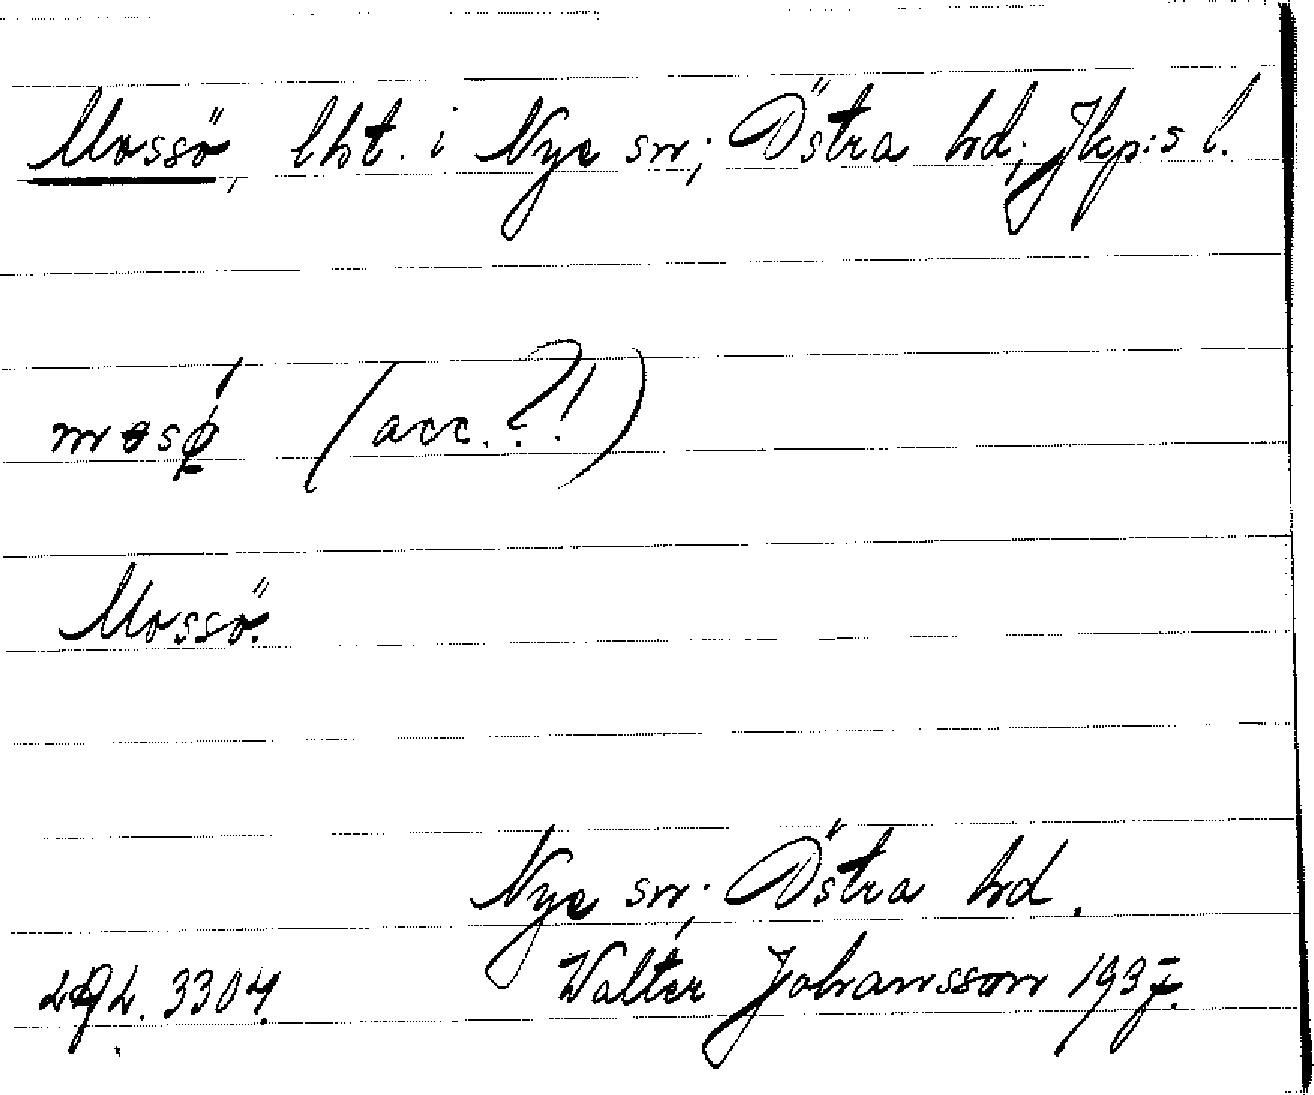 Mossö, lht. i Nye sn; Östra hd; Jkp:s l.
(acc. ?!)
Mossö.
Nye sn; Östra hd.
3304. Walter Johansson 1937.